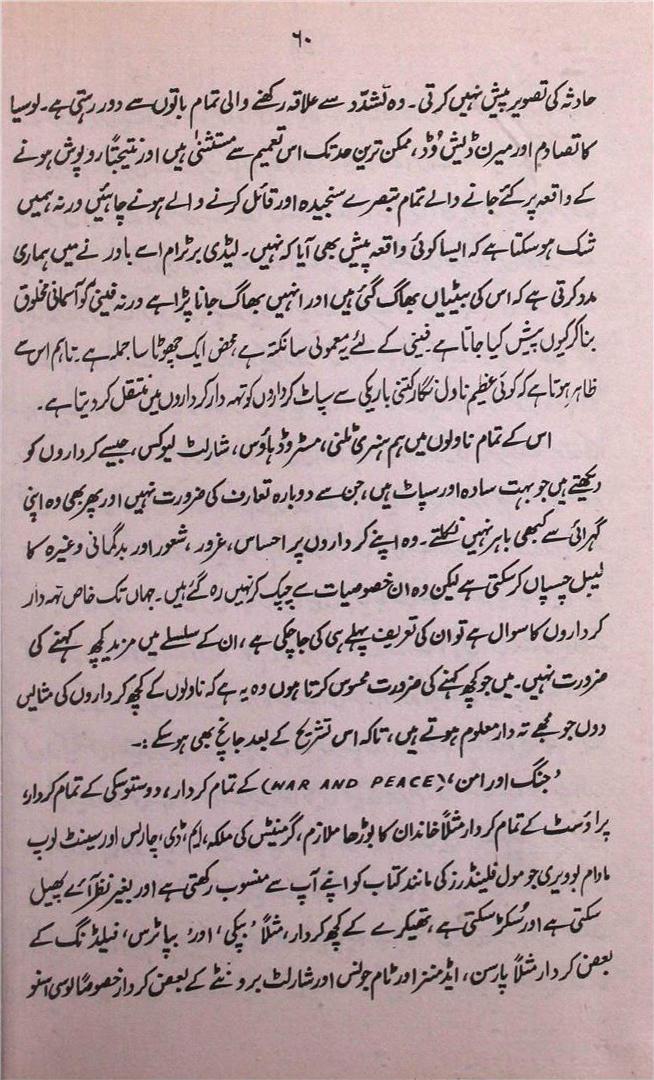 ۶۰
حادثہ کی تصویر پیش نہیں کرتی۔ وہ تشدّد سے علاقہ رکھنے والی تمام باتوں سے دور رہتی ہے۔ لوسیا
کا تصادم اور میرن ڈیش وُڈ، ممکن ترین حد تک اس تعمیم سے مستثنیٰ ہیں اور نتیجتاً روپوش ہونے
کے واقعہ پر کئے جانے والے تمام تبصرے سنجیدہ اور قائل کرنے والے ہونے چاہئیں ورنہ ہمیں
شک ہو سکتا ہے کہ ایسا کوئی واقعہ پیش بھی آیا کہ نہیں۔ لیڈی برٹرام اسے باور کرنے میں ہماری
مدد کرتی ہے کہ اس کی بیٹیاں بھاگ گئی ہیں اور انہیں بھاگ جانا پڑا ہے ورنہ فینی کو آسمانی مخلوق
بنا کر کیوں پیش کیا جاتا ہے۔ فینی کے لئے یہ معمولی سا نکتہ ہے محض ایک چھوٹا سا جملہ ہے۔ تاہم اس سے
ظاہر ہوتا ہے کہ کوئی عظیم ناول نگار کتنی باریکی سے سپاٹ کرداروں کو تہہ دار کرداروں میں منتقل کر دیتا ہے۔
اس کے تمام ناولوں میں ہم ہنری ٹلنی، مسٹر وڈ ہاؤس، شارلٹ لیوکس، جیسے کرداروں کو
دیکھتے ہیں جو بہت سادہ اور سپاٹ ہیں، جن سے دوبارہ تعارف کی ضرورت نہیں اور پھر بھی وہ اپنی
گہرائی سے کبھی باہر نہیں نکلتے۔ وہ اپنے کرداروں پر احساس، غرور، شعور اور بدگمانی وغیرہ کا
لیبل چسپاں کر سکتی ہے لیکن وہ ان خصوصیات سے چپک کر نہیں رہ گئے ہیں۔ جہاں تک خاص تہہ دار
کرداروں کا سوال ہے تو ان کی تعریف پہلے ہی کی جا چکی ہے، ان کے سلسلے میں مزید کچھ کہنے کی
ضرورت نہیں۔ میں جو کچھ کہنے کی ضرورت محسوس کرتا ہوں وہ یہ ہے کہ ناولوں کے کچھ کرداروں کی مثالیں
دوں جو مجھے تہ دار معلوم ہوتے ہیں، تاکہ اس تشریح کے بعد جانچ بھی ہو سکے :۔
'جنگ اور امن'، (WAR AND PEACE) کے تمام کردار، دوستوسکی کے تمام کردار،
پراؤسٹ کے تمام کردار مثلاً خاندان کا بوڑھا ملازم، گرمنیٹس کی ملکہ، ایم، ڈی، چارلس اور سینٹ لوپ
مادام بوویری جو مول فلینڈرز کی مانند کتاب کو اپنے آپ سے منسوب رکھتی ہے اور بغیر نظر آئے پھیل
سکتی ہے اور سُکڑ سکتی ہے، تھیکرے کے کچھ کردار، مثلاً 'بیکی' اور 'بیاٹرس'، فیلڈنگ کے
بعض کردار مثلاً پارسن، ایڈمنز اور ٹام جونس اور شارلٹ برونٹے کے بعض کردار خصوصاً لوسی اسنو